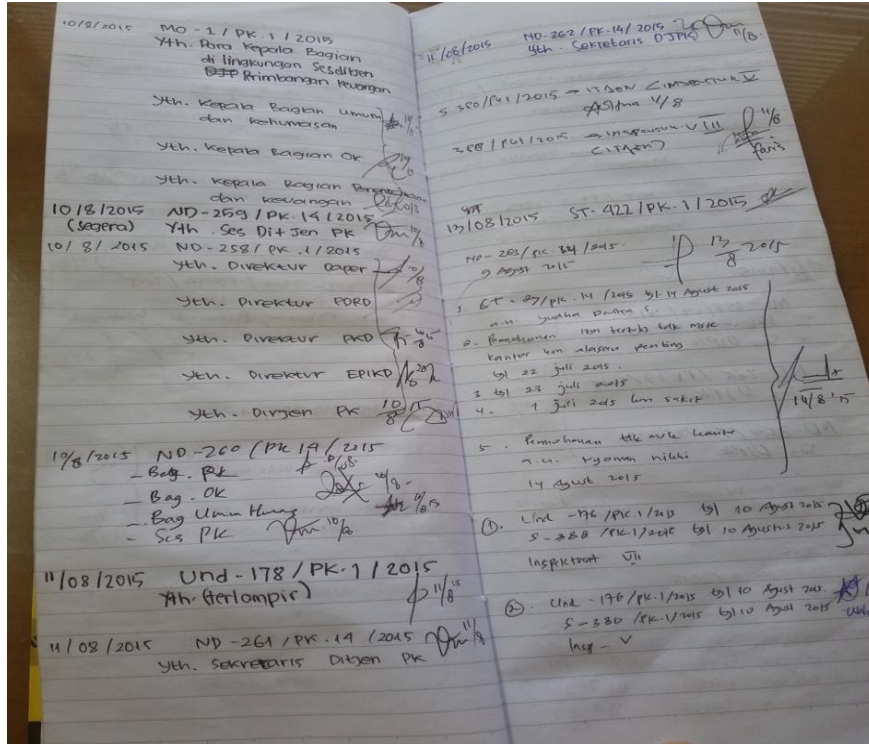 10/8/2015 MO-1/PK.1/2015
Yth. Para Kepala Bagian
di lingkungan Sesditjen
Perimbangan Keuangan
Yth. Kepala Bagian Umum
dan Kehumasan
Yth. Kepala Bagian OK
Yth. Kepala Bagian Perencanaan
dan Keuangan
10/8/2015 ND-259/PK.14/2015
(segera) Yth. Ses Ditjen PK
10/8/2015 ND-258/PK.1/2015
Yth. Direktur Daper
Yth. Direktur PDRD
Yth. Direktur PKD
Yth. Direktur EPIKD
Yth. Dirjen PK
10/8/2015 ND-260/PK 14/2015
- Bag. PK
- Bag. OK
- Bag Umum Humas
- Ses PK
11/08/2015 Und-178/PK.1/2015
Yth. (terlampir)
11/08/2015 ND-261/PK.14/2015
Yth. Sekretaris Ditjen PK
11/08/2015 ND-262/PK.14/2015
Yth. Sekretaris DJPK
S 380/PK1/2015 → ITJEN
11/8
388/PK1/2015 → VIII
(ITJEN)
faris
13/08/2015 ST-422/PK.1/2015
13/8 2015
Agust 2015
1. /PK.14/2015 tgl 14 Agust 2015
a.n. Yudha
2. Permohonan
kantor krn alasan penting
tgl 22 juli 2015.
3 tgl 23 juli 2015
4. 1 juli 2015 krn sakit
14/8 '15
5. Permohonan tdk msk kantor
a.n. nyoman
14 Agust 2015
1. Und -176/PK.1/2015 tgl 10 Agust 2015
S-388/PK.1/2015 tgl 10 Agustus 2015
Inspektorat VII
2. Und -176/PK.1/2015 tgl 10 Agust 2015
S-380/PK.1/2015 tgl 10 Agust 2015
Insp - V